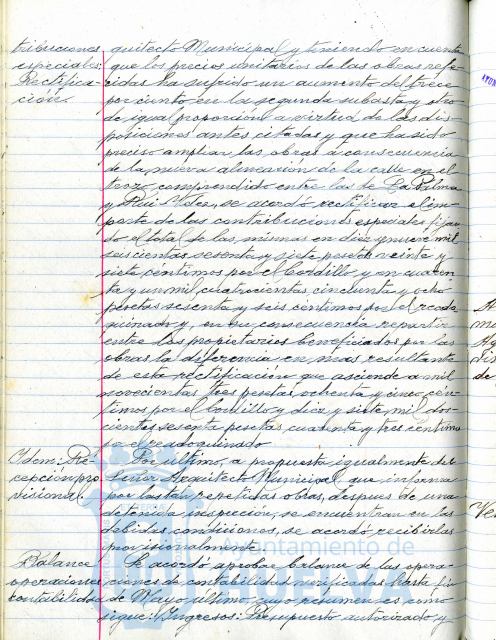 tribuciones
especiales:
Rectifica-
ción.
quitecto Municipal y teniendo en cuenta
que los precios unitarios de las obras refe-
ridas ha sufrido un aumento del trece
por ciento en la segunda subasta y otro
de igual proporción a virtud de las dis-
posiciones antes citadas y que ha sido
preciso ampliar las obras a consecuencia
de la nueva alineación de la calle en el
trozo comprendido entre las de La Palma
y Rui Vélez, se acordó rectificar el im-
porte de las contribuciones especiales fijan-
do el total de las mismas en diez y nueve mil
seiscientas sesenta y siete pesetas veinte y
siete céntimos por el bordillo y en cuaren-
ta y un mil cuatrocientas cincuenta y ocho
pesetas sesenta y seis céntimos por el readо-
quinado y, en su consecuencia repartir
entre los propietarios beneficiados por las
obras la diferencia en mas resultante
de esta rectificación que asciende a mil
novecientas tres pesetas ochenta y cinco cén-
timos por el bordillo y diez y siete mil dos-
cientas sesenta pesetas cuarenta y tres céntimos
por el readoquinado
Idem: Re-
cepción pro-
visional.
Por último, a propuesta igualmente del
Señor Arquitecto Municipal que informa
que las tan repetidas obras, despues de una
detenida inspección, se encuentran en las
debidas condiciones, se acordó recibirlas
provisionalmente.
Balance
operaciones
contabilidad
Se acordó aprobar balance de las opera-
ciones de contabilidad verificadas hasta fin
de Mayo último, cuyo resumen es como
sigue: Ingresos: Presupuesto autorizado, y
Ayuntamiento de
HUELVA